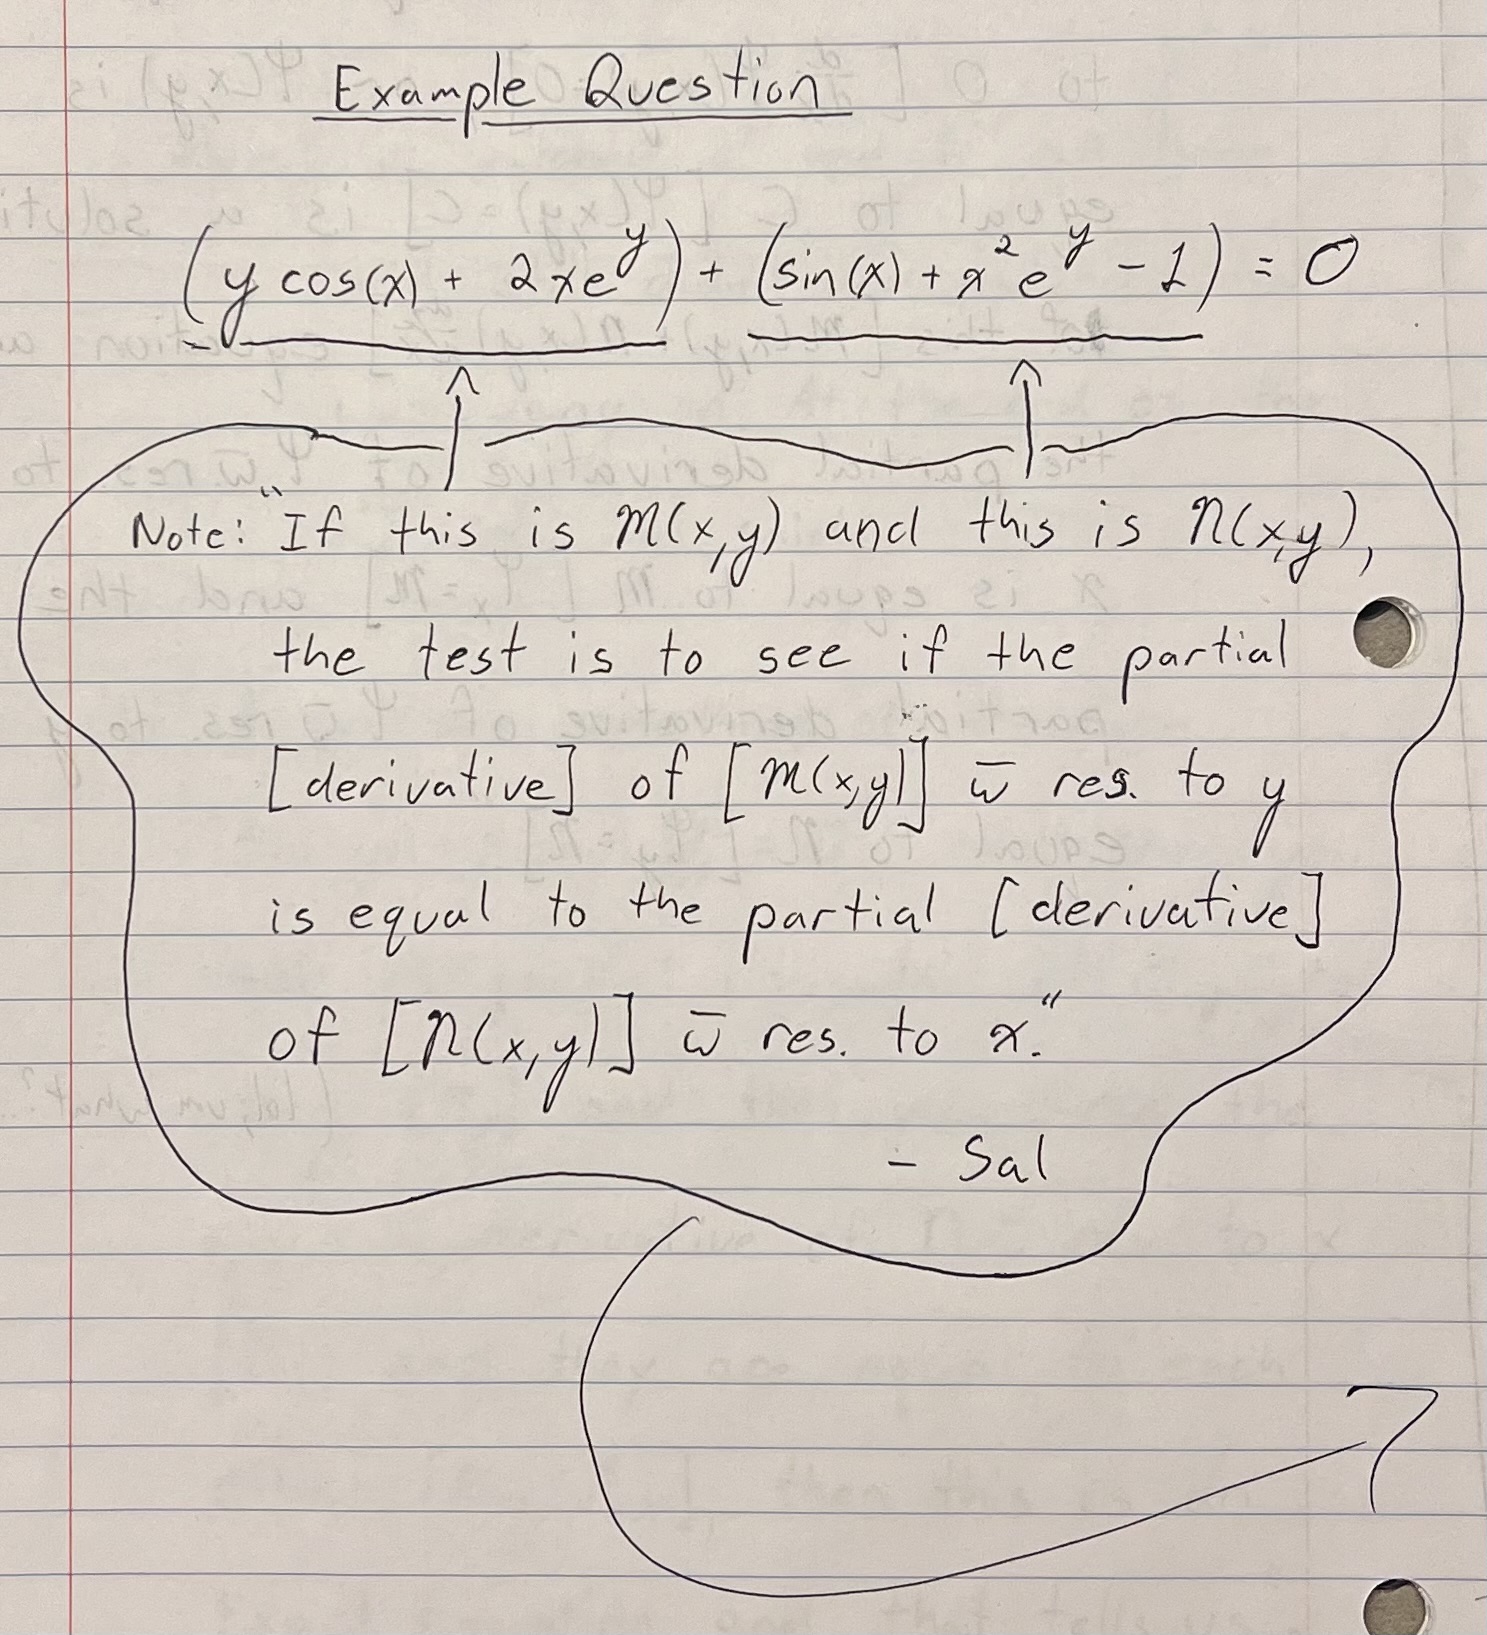 Example Question
(y cos(x) + 2xe^y) + (sin(x) + x²e^y - 1) = 0
Note: "If this is M(x,y) and this is N(x,y),
the test is to see if the partial
[derivative] of [M(x,y)] w̄ res. to y
is equal to the partial [derivative]
of [N(x,y)] w̄ res. to x."
- Sal